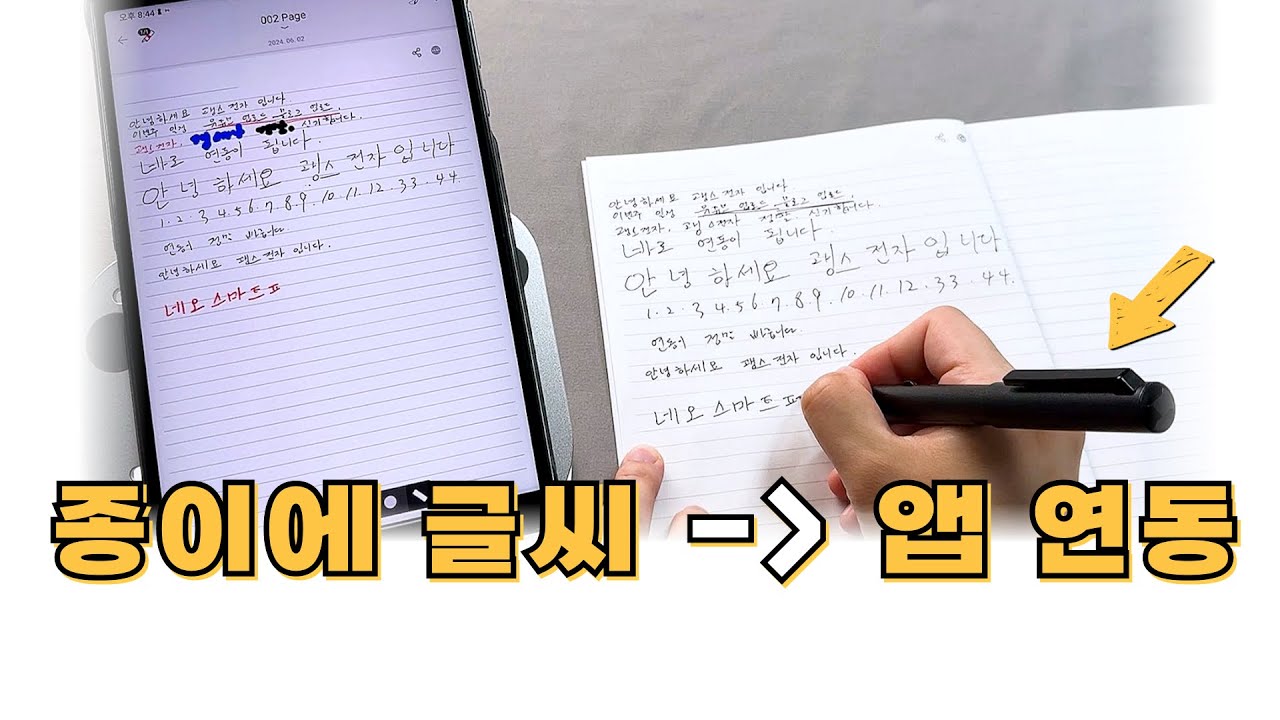 오후 8:44
002 Page
2024. 06. 02
안녕하세요 갬스전자 입니다
이번주 일정 유튜브 업로드 블로그 업로드.
갬스전자. 신기합니다.
바로 연동이 됩니다.
안녕하세요 갬스전자입니다
1. 2. 3. 4. 5. 6. 7. 8. 9. 10. 11. 12. 33. 44.
연동이 정말 빠릅니다.
안녕하세요 갬스전자 입니다.
네오 스마트 ㅍ
안녕하세요 갬스전자 입니다
이번주 일정 유튜브 업로드 블로그 업로드
갬스전자. 정말 신기합니다.
바로 연동이 됩니다.
안녕하세요 갬스전자입니다
1. 2. 3. 4. 5. 6. 7. 8. 9. 10. 11. 12. 33. 44.
연동이 정말 빠릅니다.
안녕하세요 갬스전자 입니다.
네오 스마트
종이에 글씨 -> 앱 연동